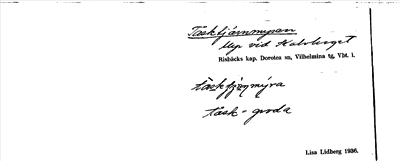 Täsktjärnmyran
Myr vid Kalvberget
Risbäcks kap. Dorotea sn, Vilhelmina tg, Vbt. l.
täsk-groda
Lisa Lidberg 1936.